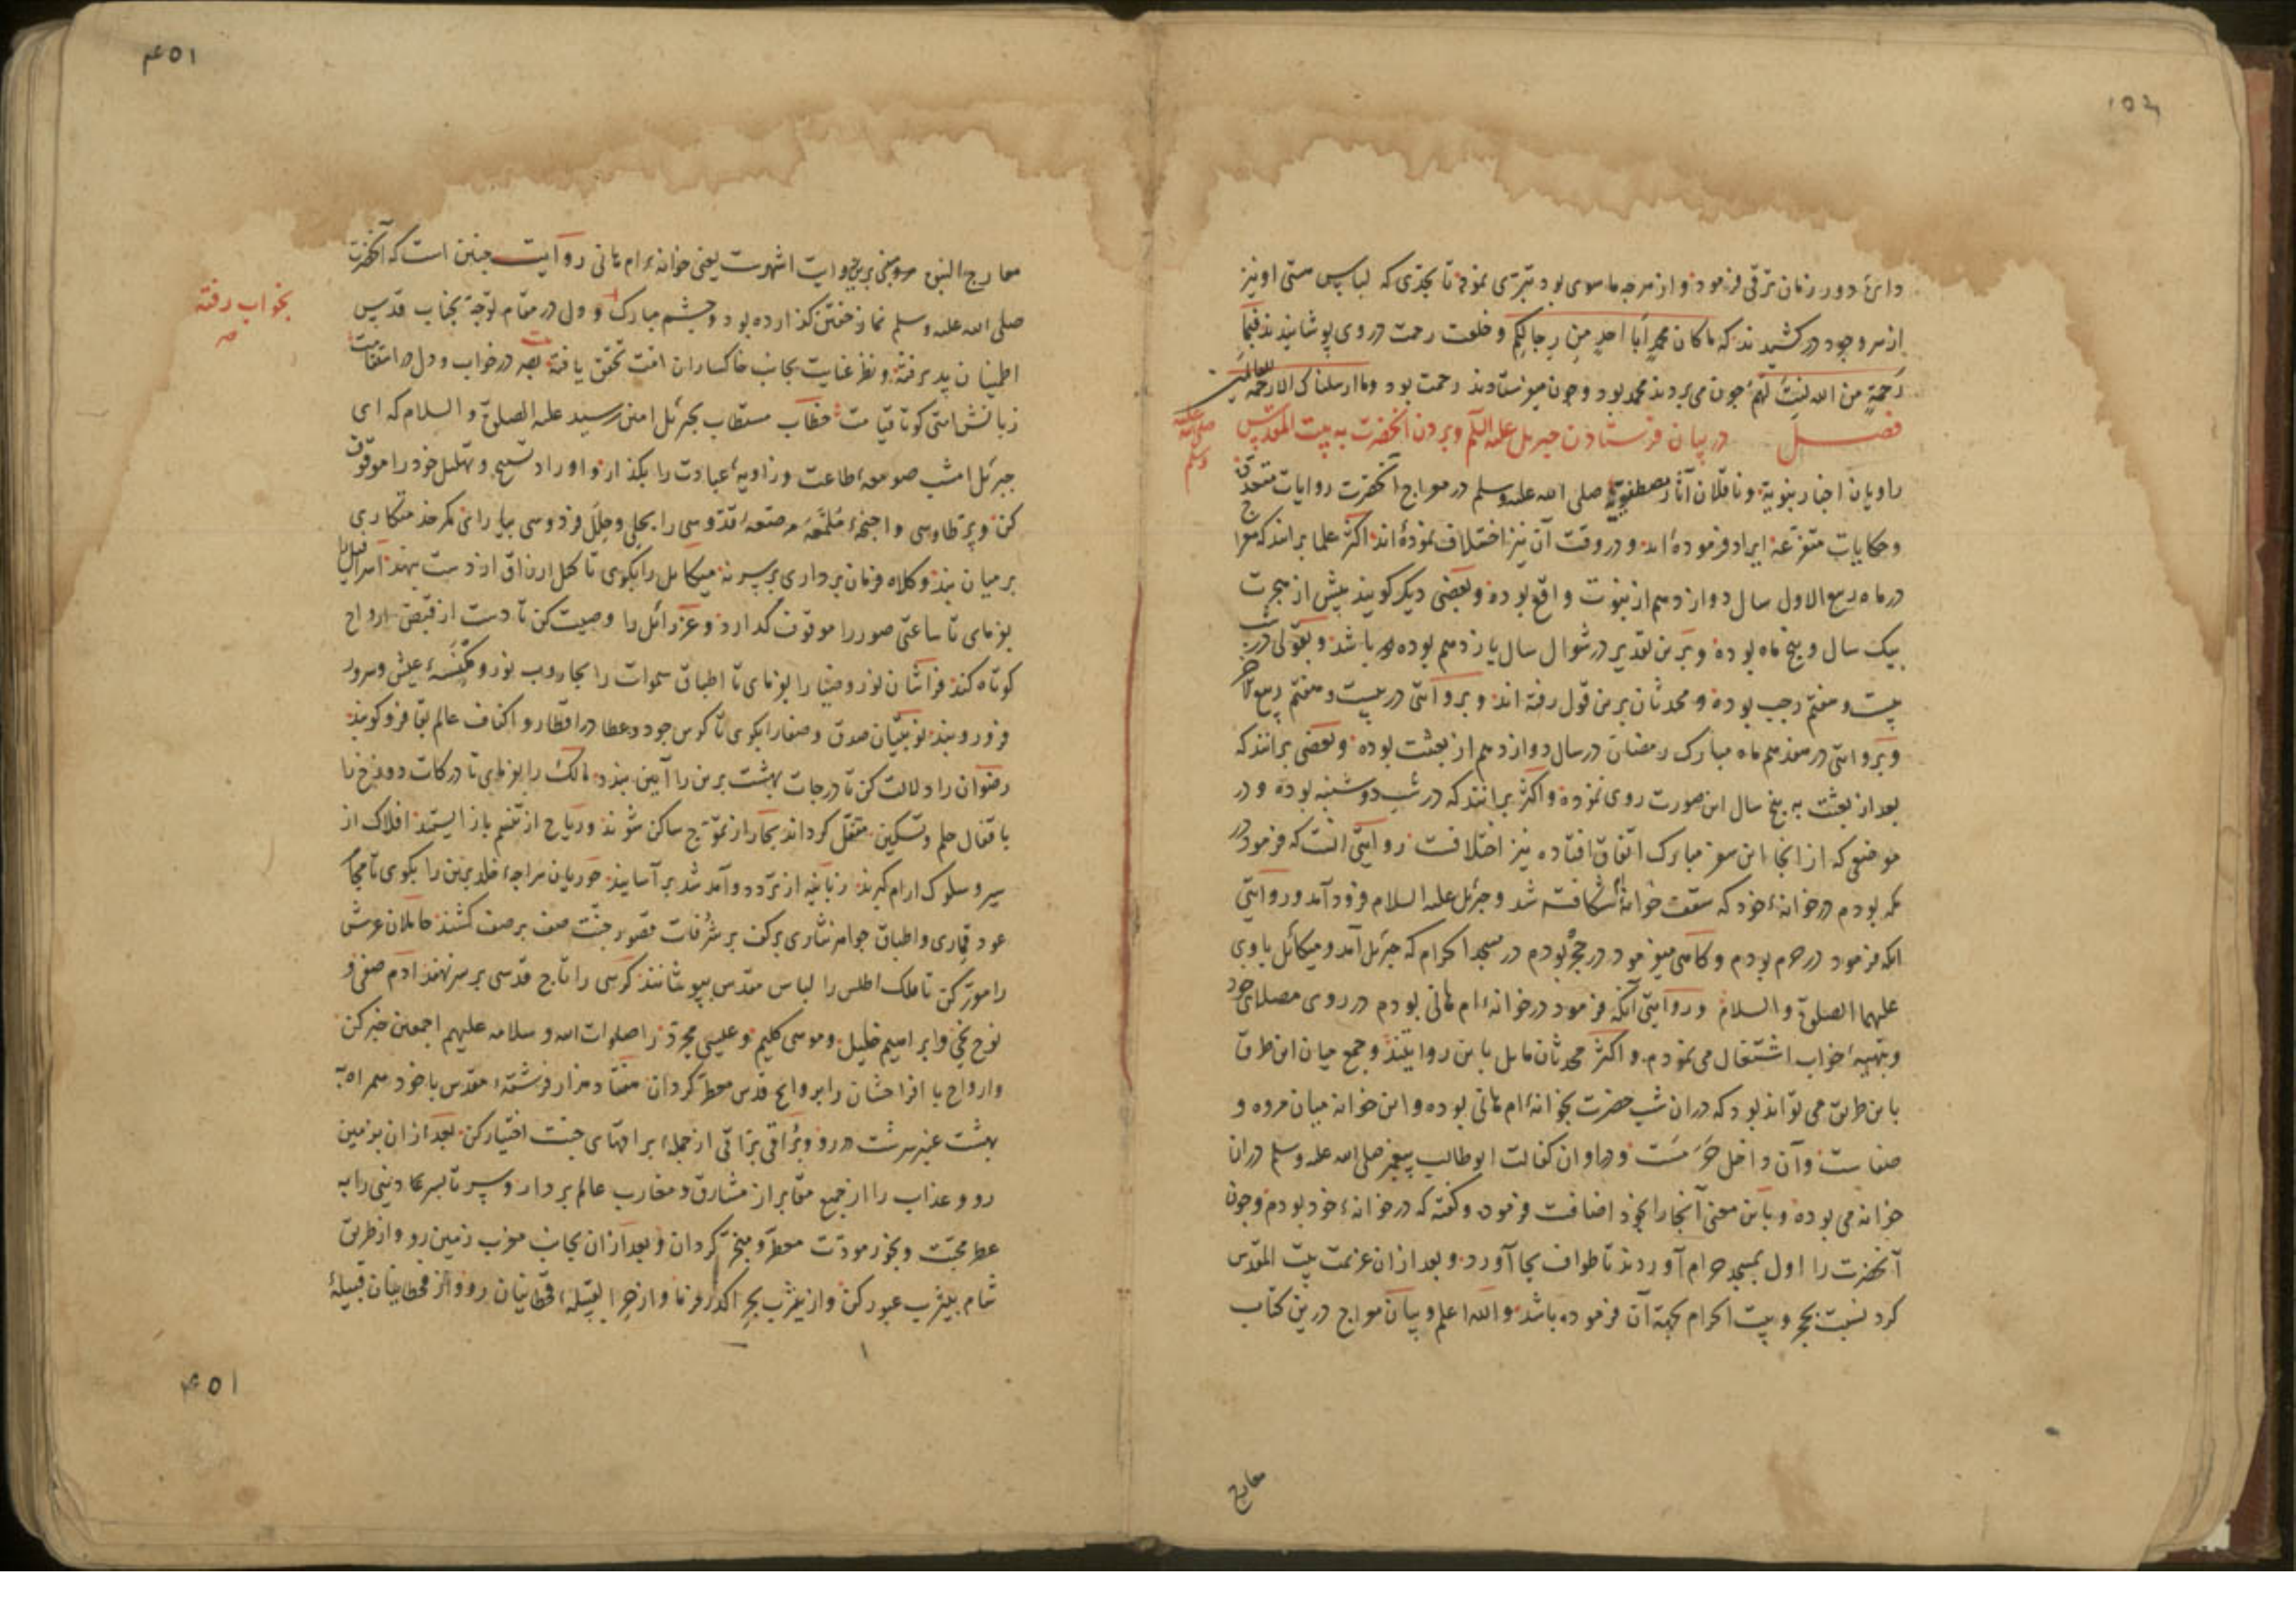 دائرۀ دور زمان ترقی فرمود و از هرچه ماسوی بود تبرّی نمود تا بحدّی که لباس هستی او نیز
از سر وجود درکشیدند که ماکان محمد ابا احدٍ من رجالکم و خلعت رحمت در وی پوشانیدند فبما
رحمةٍ من الله لنت لهم چون می بردند محمد بود و چون میفرستادند رحمت بود وما ارسلناک الا رحمة للعالمین
فصل در بیان فرستادن جبریل علیه السلم و بردن آنحضرت به بیت المقدس
صلی الله علیه وسلم
راویان اخبار نبویة و ناقلان آثار مصطفویة صلی الله علیه وسلم در معراج آنحضرت روایات متعدده
و حکایات متنوعه ایراد فرموده اند و در وقت آن نیز اختلاف نموده اند اکثر علما برانند که معراج
در ماه ربیع الاول سال دوازدهم از نبوت واقع بوده و بعضی دیگر گویند پیش از هجرت
بیک سال و پنج ماه بوده و برین تقدیر در شوال سال یازدهم بوده باشد و بقولی در شب
بیست و هفتم رجب بوده و محدثان برین قول رفته اند و بروایتی در بیست و هفتم ربیع الآخر
و بروایتی در هفدهم ماه مبارک رمضان در سال دوازدهم از بعثت بوده و بعضی برانند که
بعد از بعثت به پنج سال این صورت روی نموده و اکثر برانند که در شب دوشنبه بوده و در
موضعی که از انجا این سفر مبارک اتفاق افتاده نیز اختلافست روایتی آنست که فرمود در
مکه بودم در خانۀ خود که سقف خانه شکافته شد و جبرئل علیه السلام فرود آمد و روایتی
آنکه فرمود در حرم بودم و گاهی میفرمود در حجر بودم در مسجد الحرام که جبرئل آمد و میکائل با وی
علیهما الصلوة والسلام و روایتی آنکه فرمود در خانۀ ام هانی بودم در روی مصلای خود
و بتهیۀ خواب اشتغال می نمودم و اکثر محدثان مایل باین روایتند و جمع میان این طرق
باین طریق می تواند بود که دران شب حضرت بخانۀ ام هانی بوده و این خانه میان مروه و
صفاست و آن داخل حرمست و در اوان کفالت ابوطالب پیغمبر صلی الله علیه وسلم دران
خانه می بوده و باین معنی آنجا را بخود اضافت فرموده و گفته که در خانۀ خود بودم و چون
آنحضرت را اول بمسجد حرام آوردند تا طواف بجا آورد و بعد از ان عزیمت بیت المقدس
کرد نسبت بحجر و بیت الحرام بجهة آن فرموده باشد والله اعلم و بیان معراج درین کتاب
معارج
معارج النبوة مبنی برین روایت اشهرست یعنی خانۀ ام هانی روایت چنین است که آنحضرت
صلی الله علیه وسلم نماز خفتن گذارده بود و چشم مبارک و دل در مقام توجه بجناب قدس
بخواب رفته
صح
اطمینان پذیرفته و نظر عنایت بجانب خاکساران امت تحقق یافته بصر در خواب و دل در استقامت
زبانش امتی گو تا قیامت خطاب مستطاب بجبرئل امین رسید علیه الصلوة والسلام که ای
جبرئل امشب صومعۀ طاعت و زاویۀ عبادت را بگذار و اوراد تسبیح و تهلیل خود را موقوف
کن و پر طاوسی و اجنحۀ ملمعه مرصعۀ قدوسی را بحلی و حلل فردوسی بیارای کمر خدمتکاری
بر میان بند و کلاه فرمان برداری بر سر نه میکائل را بگوی تا کیل ارزاق از دست بنهد اسرافیل را
بفرمای تا ساعتی صور را موقوف گدارد و عزرائل را وصیت کن تا دست از قبض ارواح
کوتاه کند فراشان نور و ضیا را بفرمای تا اطباق سموات را بجاروب نور و مکنسۀ عیش و سرور
فرو روبند نوبتیان صدق و صفا را بگوی تا کوس جود و عطا در اقطار و اکناف عالم بقا فرو کوبند
رضوان را دلالت کن تا درجات بهشت برین را آیین بندد مالک را بفرمای تا درکات دوزخ را
باقفال حلم و تسکین مقفل گرداند بحار از تموّج ساکن شوند و ریاح از تنسّم باز ایستند افلاک از
سیر و سلوک ارام گیرند زبانیه از تردد و آمد شد بر آسایند حوریان سراچۀ خلد برین را بگوی تا مجامر
عود قماری و اطباق جواهر نثاری بر کف بر شرفات قصور جنت صف بر صف کشند حاملان عرش
را مورّ کن تا فلک اطلس را لباس مقدس بپوشانند کرسی را تاج قدسی بر سر نهند آدم صفی و
نوح نجی و ابراهیم خلیل و موسی کلیم و عیسی مجرد را صلوات الله و سلامه علیهم اجمعین خبر کن
و ارواح با افراحشان را بروایح قدس معطر گردان هفتاد هزار فرشتۀ مقدس با خود همراه به
بهشت عنبرسرشت در رو و براقی برّاقی از جملۀ براقهای جنت اختیار کن بعد از ان بزمین
رو و عذاب را از جمیع مقابر از مشارق و مغارب عالم بردار و سر تا سر دنیی را به
عطر محبت و بخور مودت معطر و مبخر گردان و بعد از ان بجانب مغرب زمین رو و از طریق
شام بیثرب عبور کن و از یثرب بحر اگذر فرما و از حرا بقبیلۀ قحطانیان رو و از قحطانیان قبیلۀ
۱۵۴